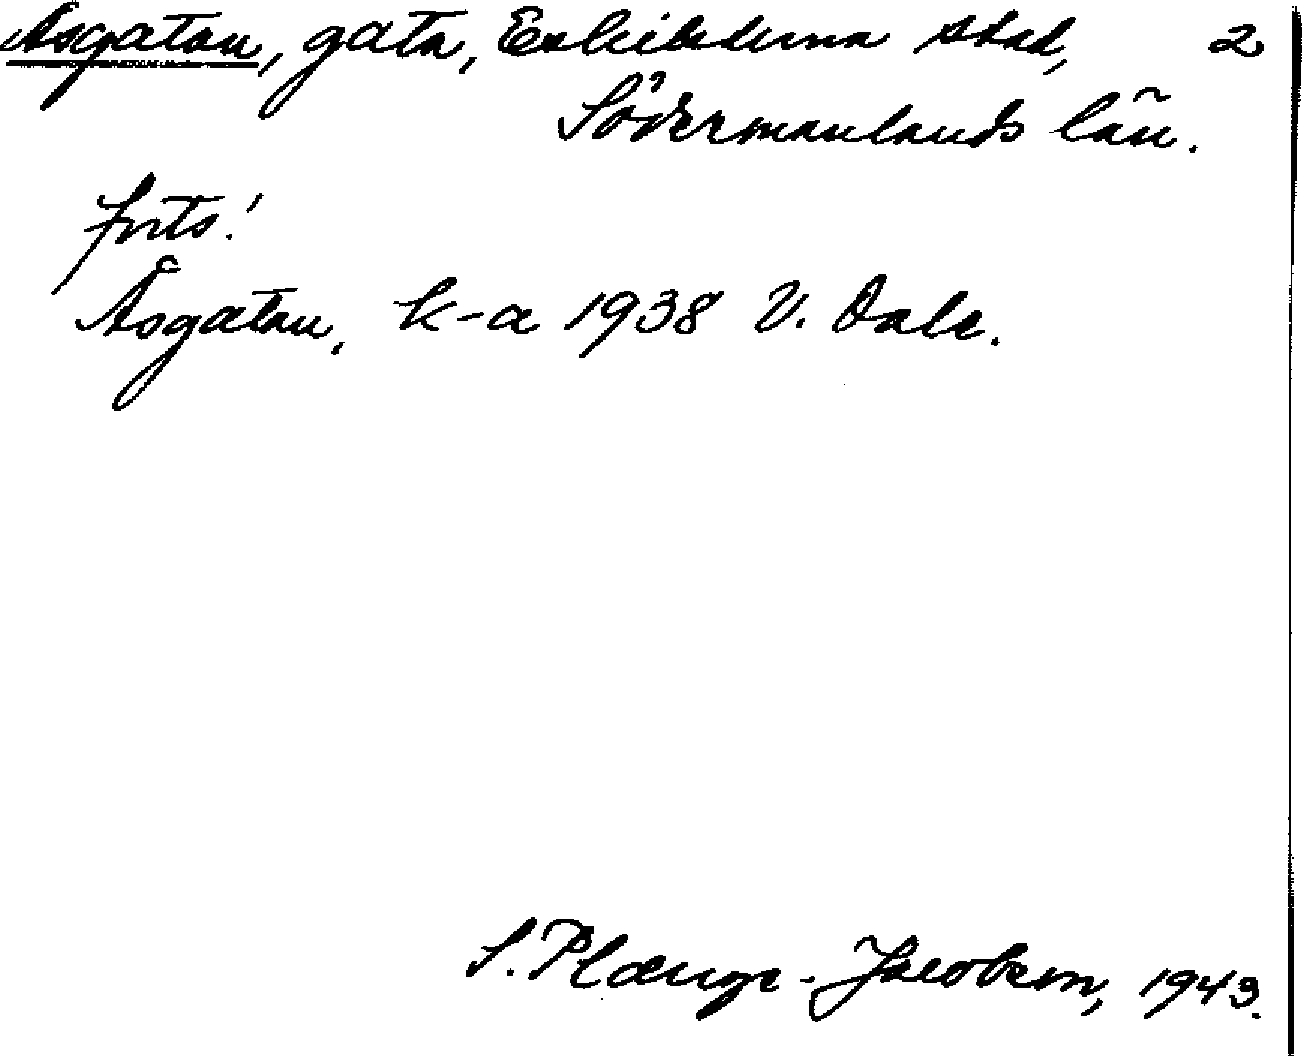 Åsgatan, gata, Eskilstuna stad, 2
Södermanlands län.
forts!
Åsgatan, k-a 1938 V. Dale.
S. Plærup-Jacobson, 1943.